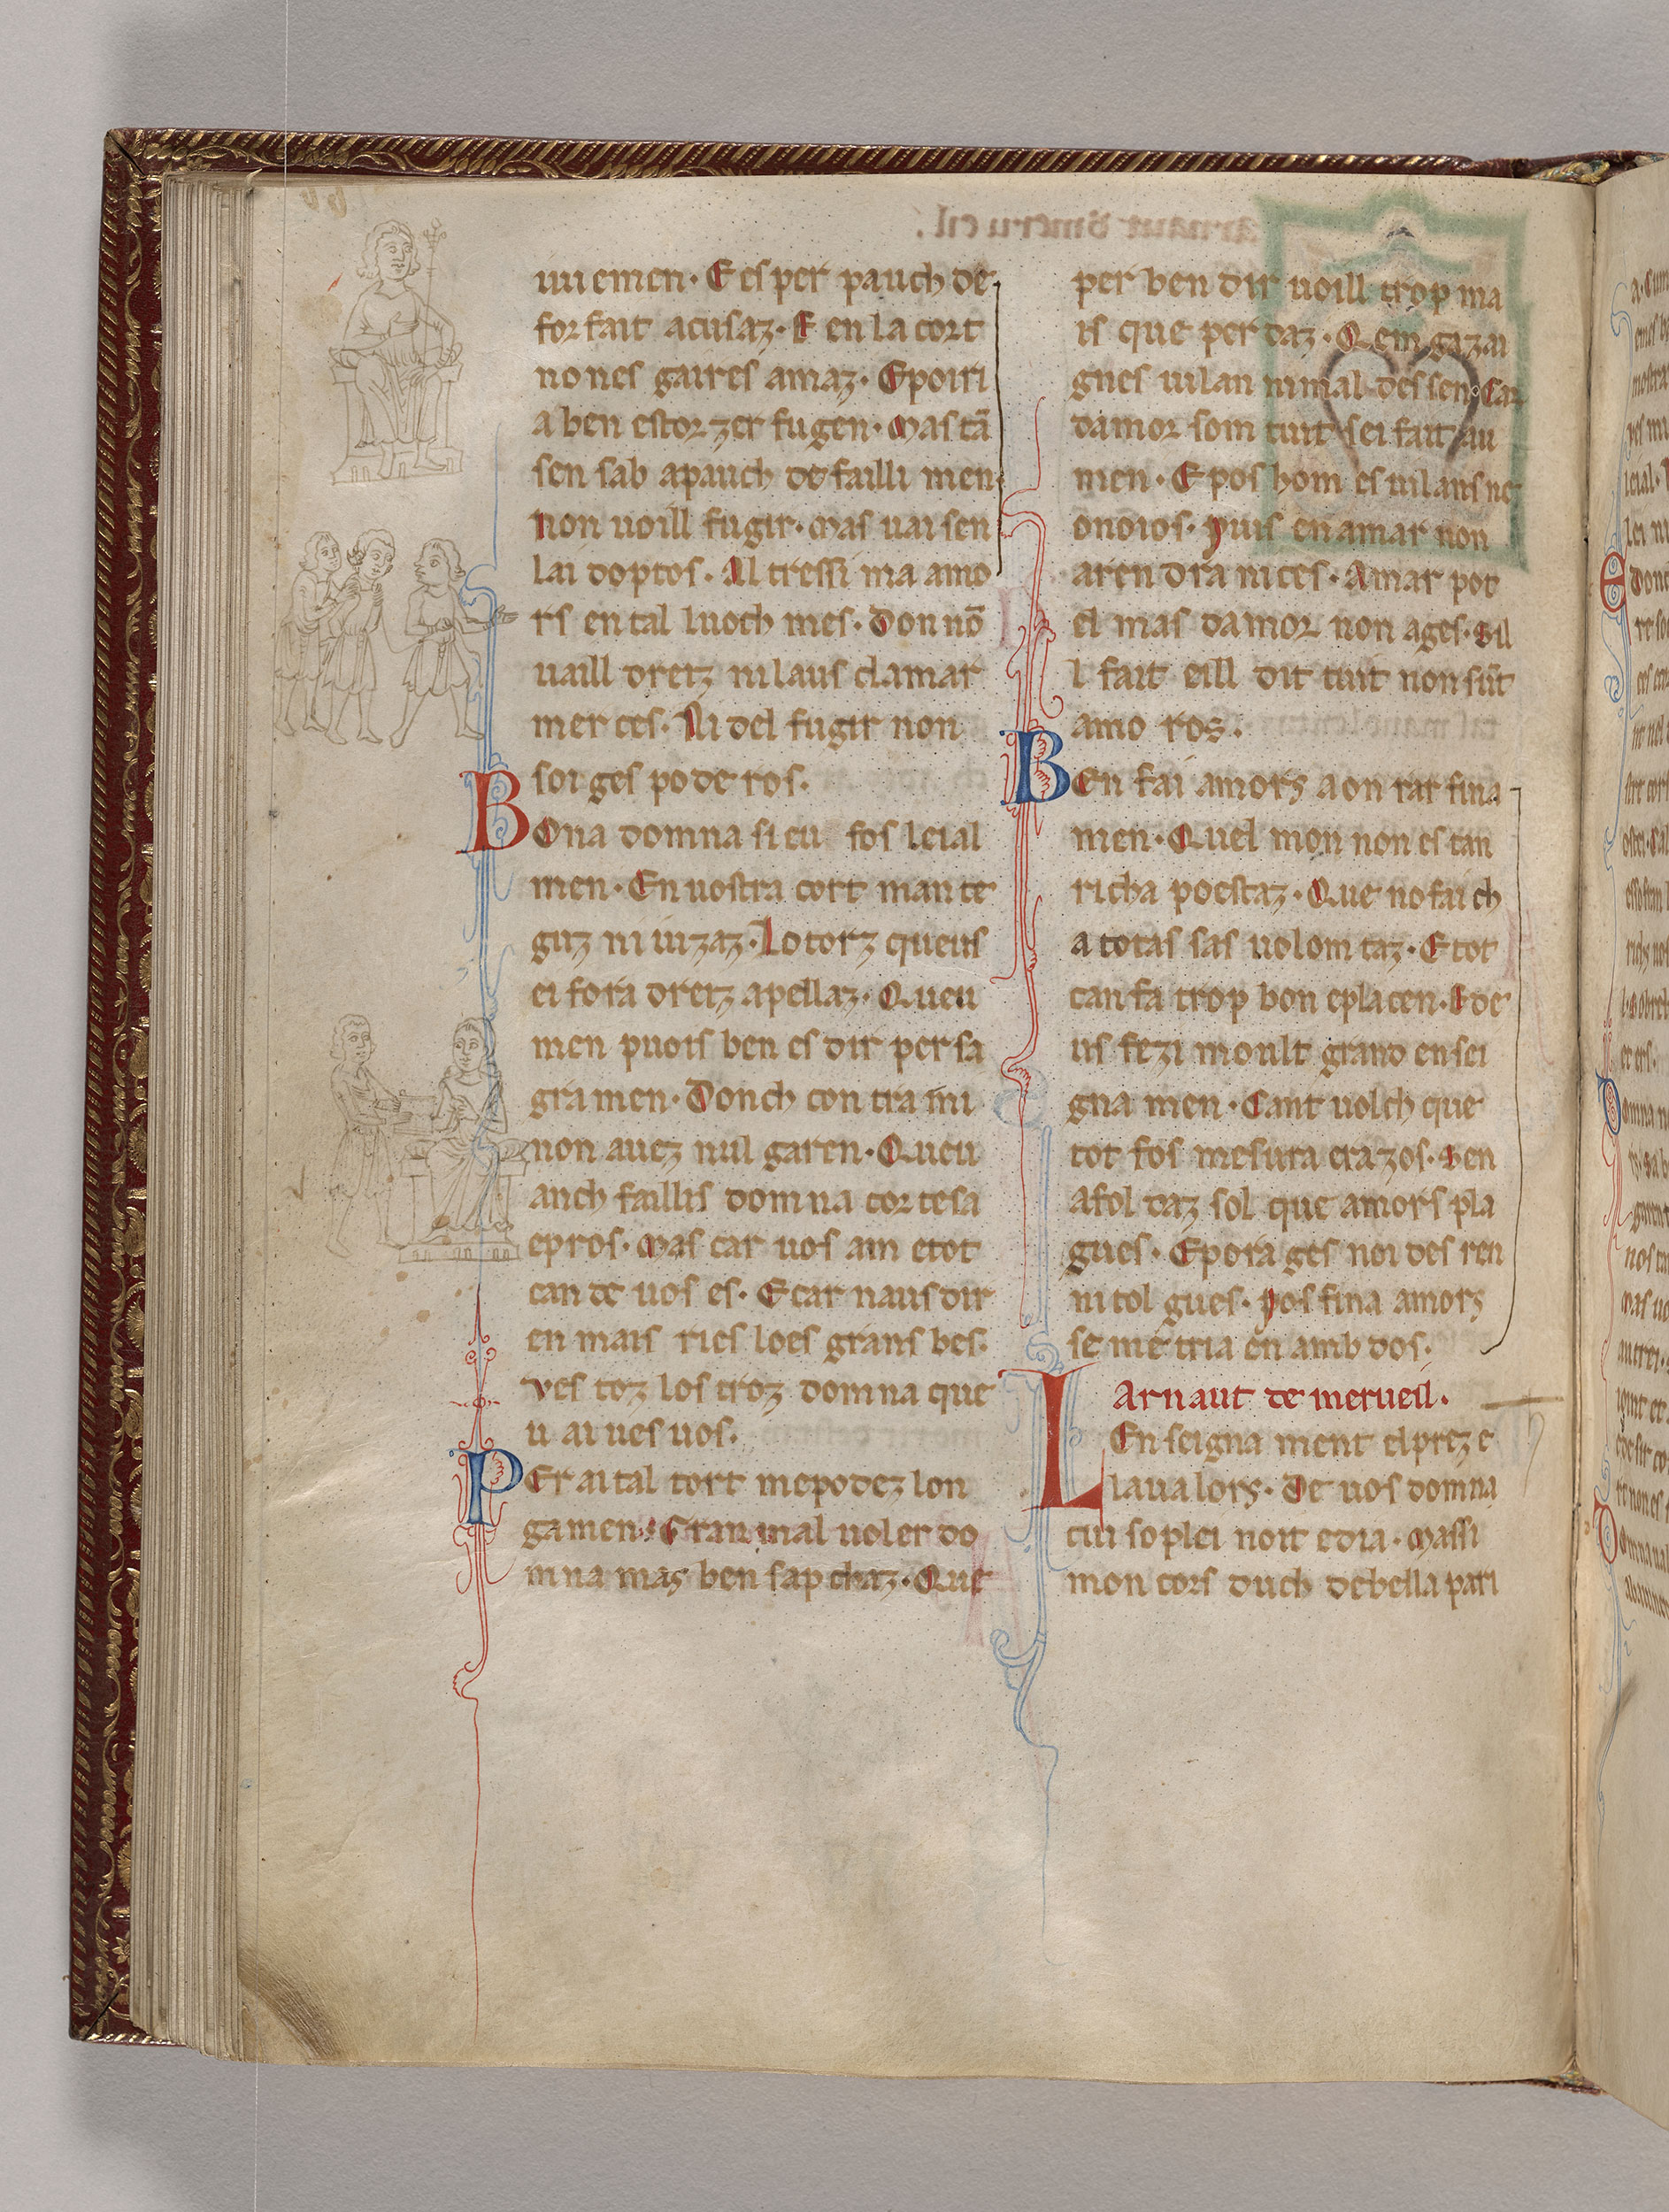 iuiemen. E es per pauch de
forfait acusaz. E en la cort
nones gaires amaz. Epoiri
a ben estorzer fugen. Mas tã
sen sab apauch de failli men
non uoill fugir. Mas uai sen
lai doptos. Al tressi ma amo
rs en tal luoch mes. Don nõ
uaill dretz nilaus clamar
merces. Ni del fugir non
soi ges poderos.
Bona domna si eu fos leial
men. En uostra cort man te
guz ni iuzaz. Lo torz queus
ei fora dretz apellaz. Queu
men puois ben es dir per sa
gramen. Donch contra mi
non auez nul garen. Queu
anch faillis domna cortesa
epros. Mas car uos am etot
can de uos es. E car naus dir
en mais ries loes grans bes.
ves toz los troz domna que
u ai ues uos.
Per aital tort me podez lon
gamen. Gran mal uoler do
mna mas ben sapchaz. Que
per ben dir uoill trop ma
is que per daz. Qem gazai
gnes uilan nimal des sen. Car
damor som tuit sei fait au
men. E pos hom es uilans ne
onoios. Puis en amar non
aten dra nices. Amar pot
el mas damor non ages. Sil
l fait eill dit tuit non sũt
amo ros.
Ben fai amors aonrar fina
men. Quel mon non es tan
richa poestaz. Que no fai ch
a totas sas uolomtaz. E tot
can fa trop bon eplacen. I de
us fezi moult grand ensei
gna men. Cant uolch que
tot fos mesura erazos. Sen
afol daz sol que amors pla
gues. E pora ges noi des ren
ni tol gues. Pos fina amors
se metria en amb dos.
Arnaut de merueil.
L En seigna ment el prez e
la ualors. De uos domna
cui soplei noit edia. Massi
mon cors duch debella pari